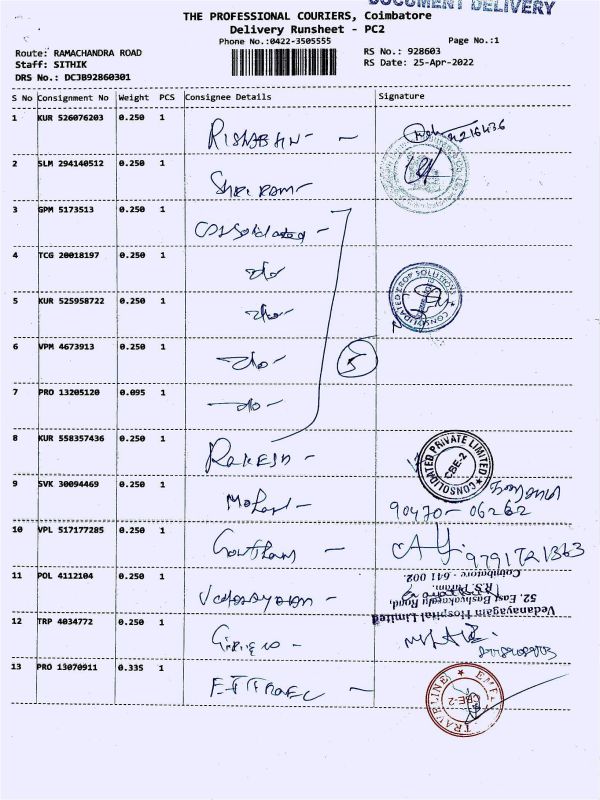 DOCUMENT DELIVERY
THE PROFESSIONAL COURIERS, Coimbatore
Delivery Runsheet - PC2
Phone No.:0422-3505555
Page No.:1
Route: RAMACHANDRA ROAD
RS No.: 928603
Staff: SITHIK
RS Date: 25-Apr-2022
DRS No.: DCJB92860301
S No Consignment No Weight PCS Consignee Details Signature
1 KUR 526076203 0.250 1
2 SLM 294140512 0.250 1 Shriram
3 GPM 5173513 0.250 1 Consolidated
4 TCG 20018197 0.250 1 do
5 KUR 525958722 0.250 1 do
CONSOLIDATED CROP SOLUTIONS
6 VPM 4673913 0.250 1 do
5
7 PRO 13205120 0.095 1 do
8 KUR 558357436 0.250 1 Rakesh
CONSOLIDATED PRIVATE LIMITED
CBE-2
9 SVK 30094469 0.250 1
90470-06262
10 VPL 517177285 0.250 1 Goutham
9791721363
11 POL 4112104 0.250 1
Vedanayagam Hospital Limited
52, East Bashyakaralu Road,
R.S. Puram,
Coimbatore - 641 002.
12 TRP 4034772 0.250 1
13 PRO 13070911 0.335 1
TRAVELINE
CBE-2